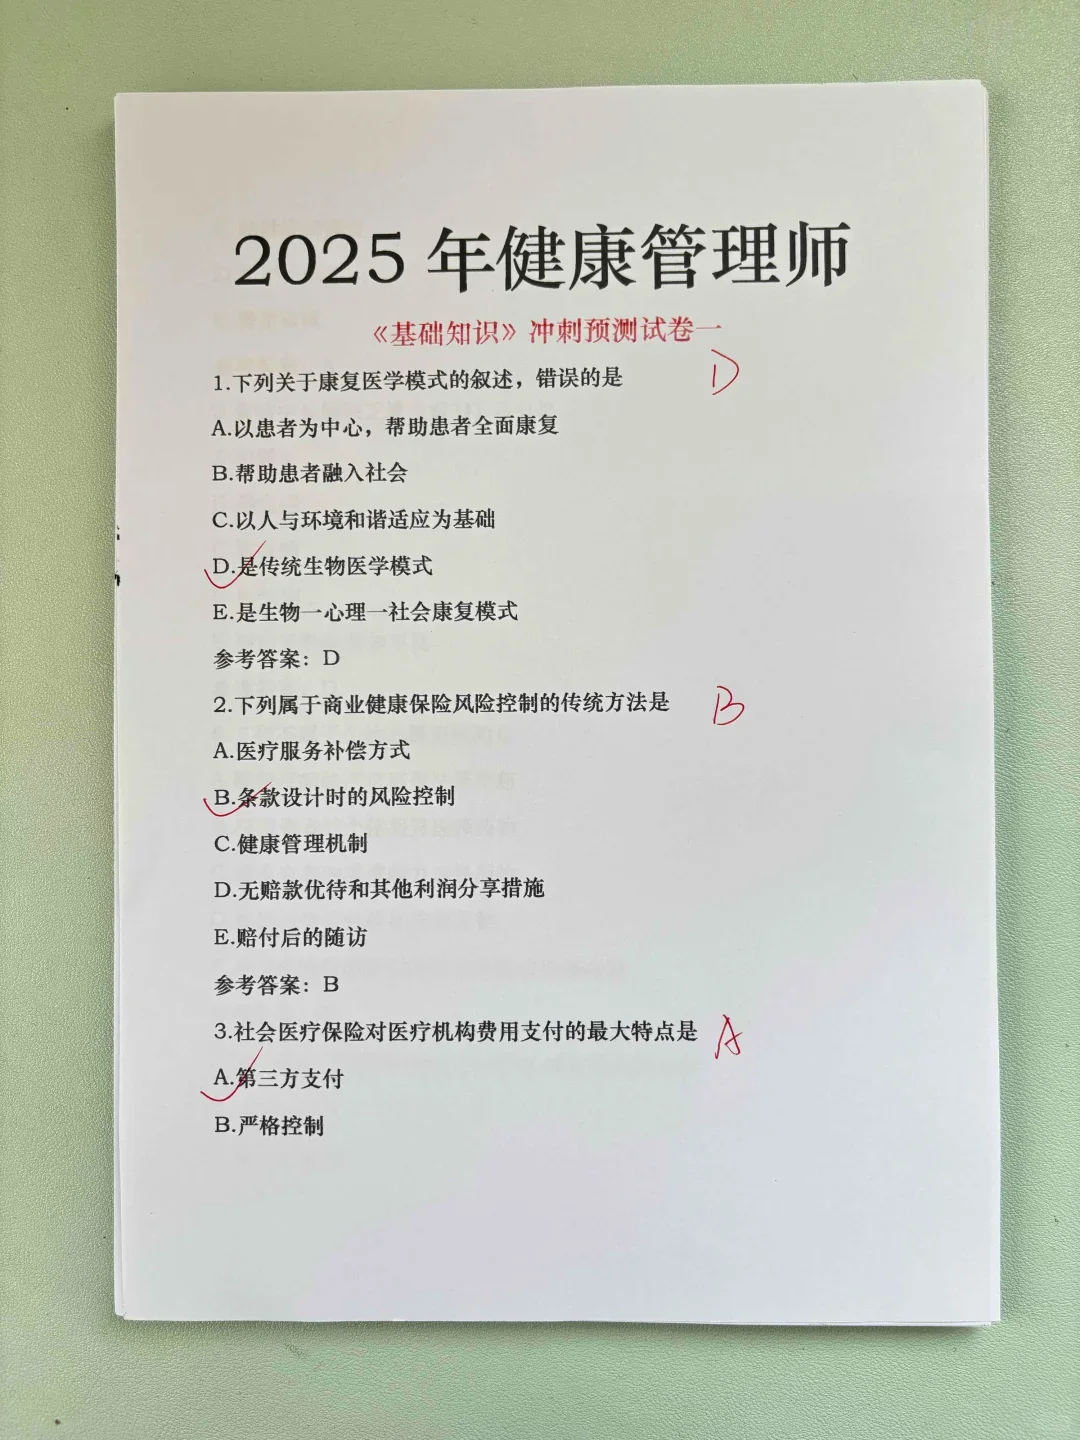 2025 年健康管理师
《基础知识》冲刺预测试卷一
1.下列关于康复医学模式的叙述，错误的是 D
A.以患者为中心，帮助患者全面康复
B.帮助患者融入社会
C.以人与环境和谐适应为基础
D.是传统生物医学模式
E.是生物一心理一社会康复模式
参考答案：D
2.下列属于商业健康保险风险控制的传统方法是 B
A.医疗服务补偿方式
B.条款设计时的风险控制
C.健康管理机制
D.无赔款优待和其他利润分享措施
E.赔付后的随访
参考答案：B
3.社会医疗保险对医疗机构费用支付的最大特点是 A
A.第三方支付
B.严格控制